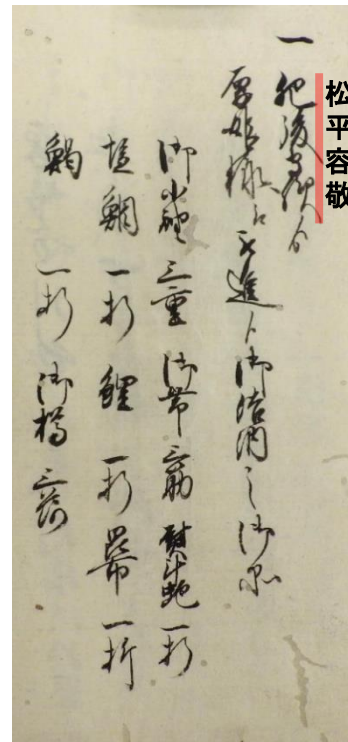 松平容敬
一 肥後守様ゟ
厚姫様江被進候御結納之御品
御小袖 三重 御帯 三筋 熨斗蚫 一折
塩鯛 一折 鯉 一折 昆布 一折
鯣 一折 御樽 三荷